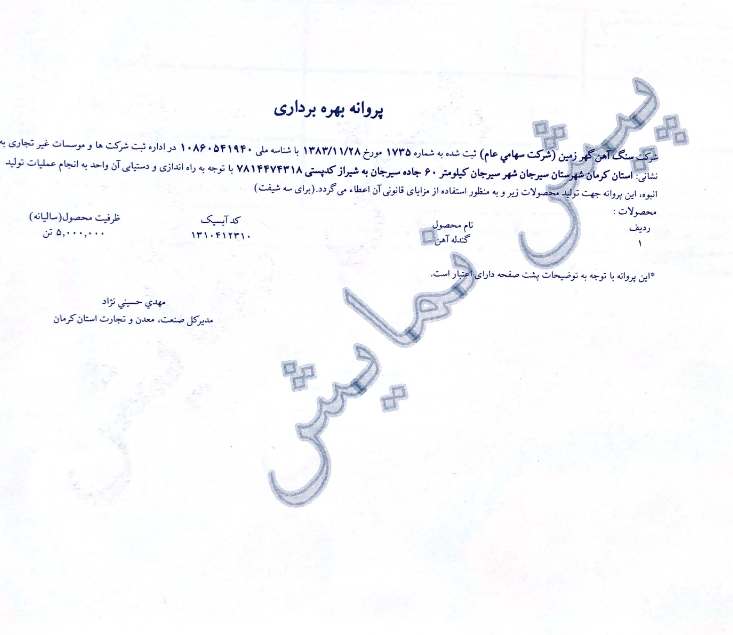 پروانه بهره برداری
شرکت سنگ آهن گهر زمین (شرکت سهامي عام) ثبت شده به شماره ۱۷۳۵ مورخ ۱۳۸۳/۱۱/۲۸ با شناسه ملی ۱۰۸۶۰۵۴۱۹۴۰ در اداره ثبت شرکت ها و موسسات غیر تجاری به
نشانی: استان کرمان شهرستان سیرجان شهر سیرجان کیلومتر ۶۰ جاده سیرجان به شیراز کدپستی ۷۸۱۴۴۷۴۳۱۸ با توجه به راه اندازی و دستیابی آن واحد به انجام عملیات تولید
انبوه، این پروانه جهت تولید محصولات زیر و به منظور استفاده از مزایای قانونی آن اعطاء می گردد.(برای سه شیفت)
محصولات :
ردیف نام محصول کد آیسیک ظرفیت محصول(سالیانه)
۱ گندله آهن ۱۳۱۰۴۱۲۳۱۰ ۵,۰۰۰,۰۰۰ تن
*این پروانه با توجه به توضیحات پشت صفحه دارای اعتبار است.
مهدي حسيني نژاد
مدیرکل صنعت، معدن و تجارت استان کرمان
پیش نمایش